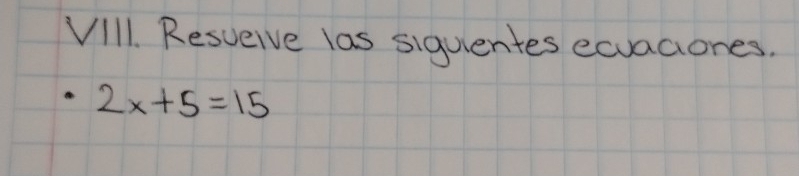 VIII. Resuelve las siguientes ecuaciones.
• 2x+5=15